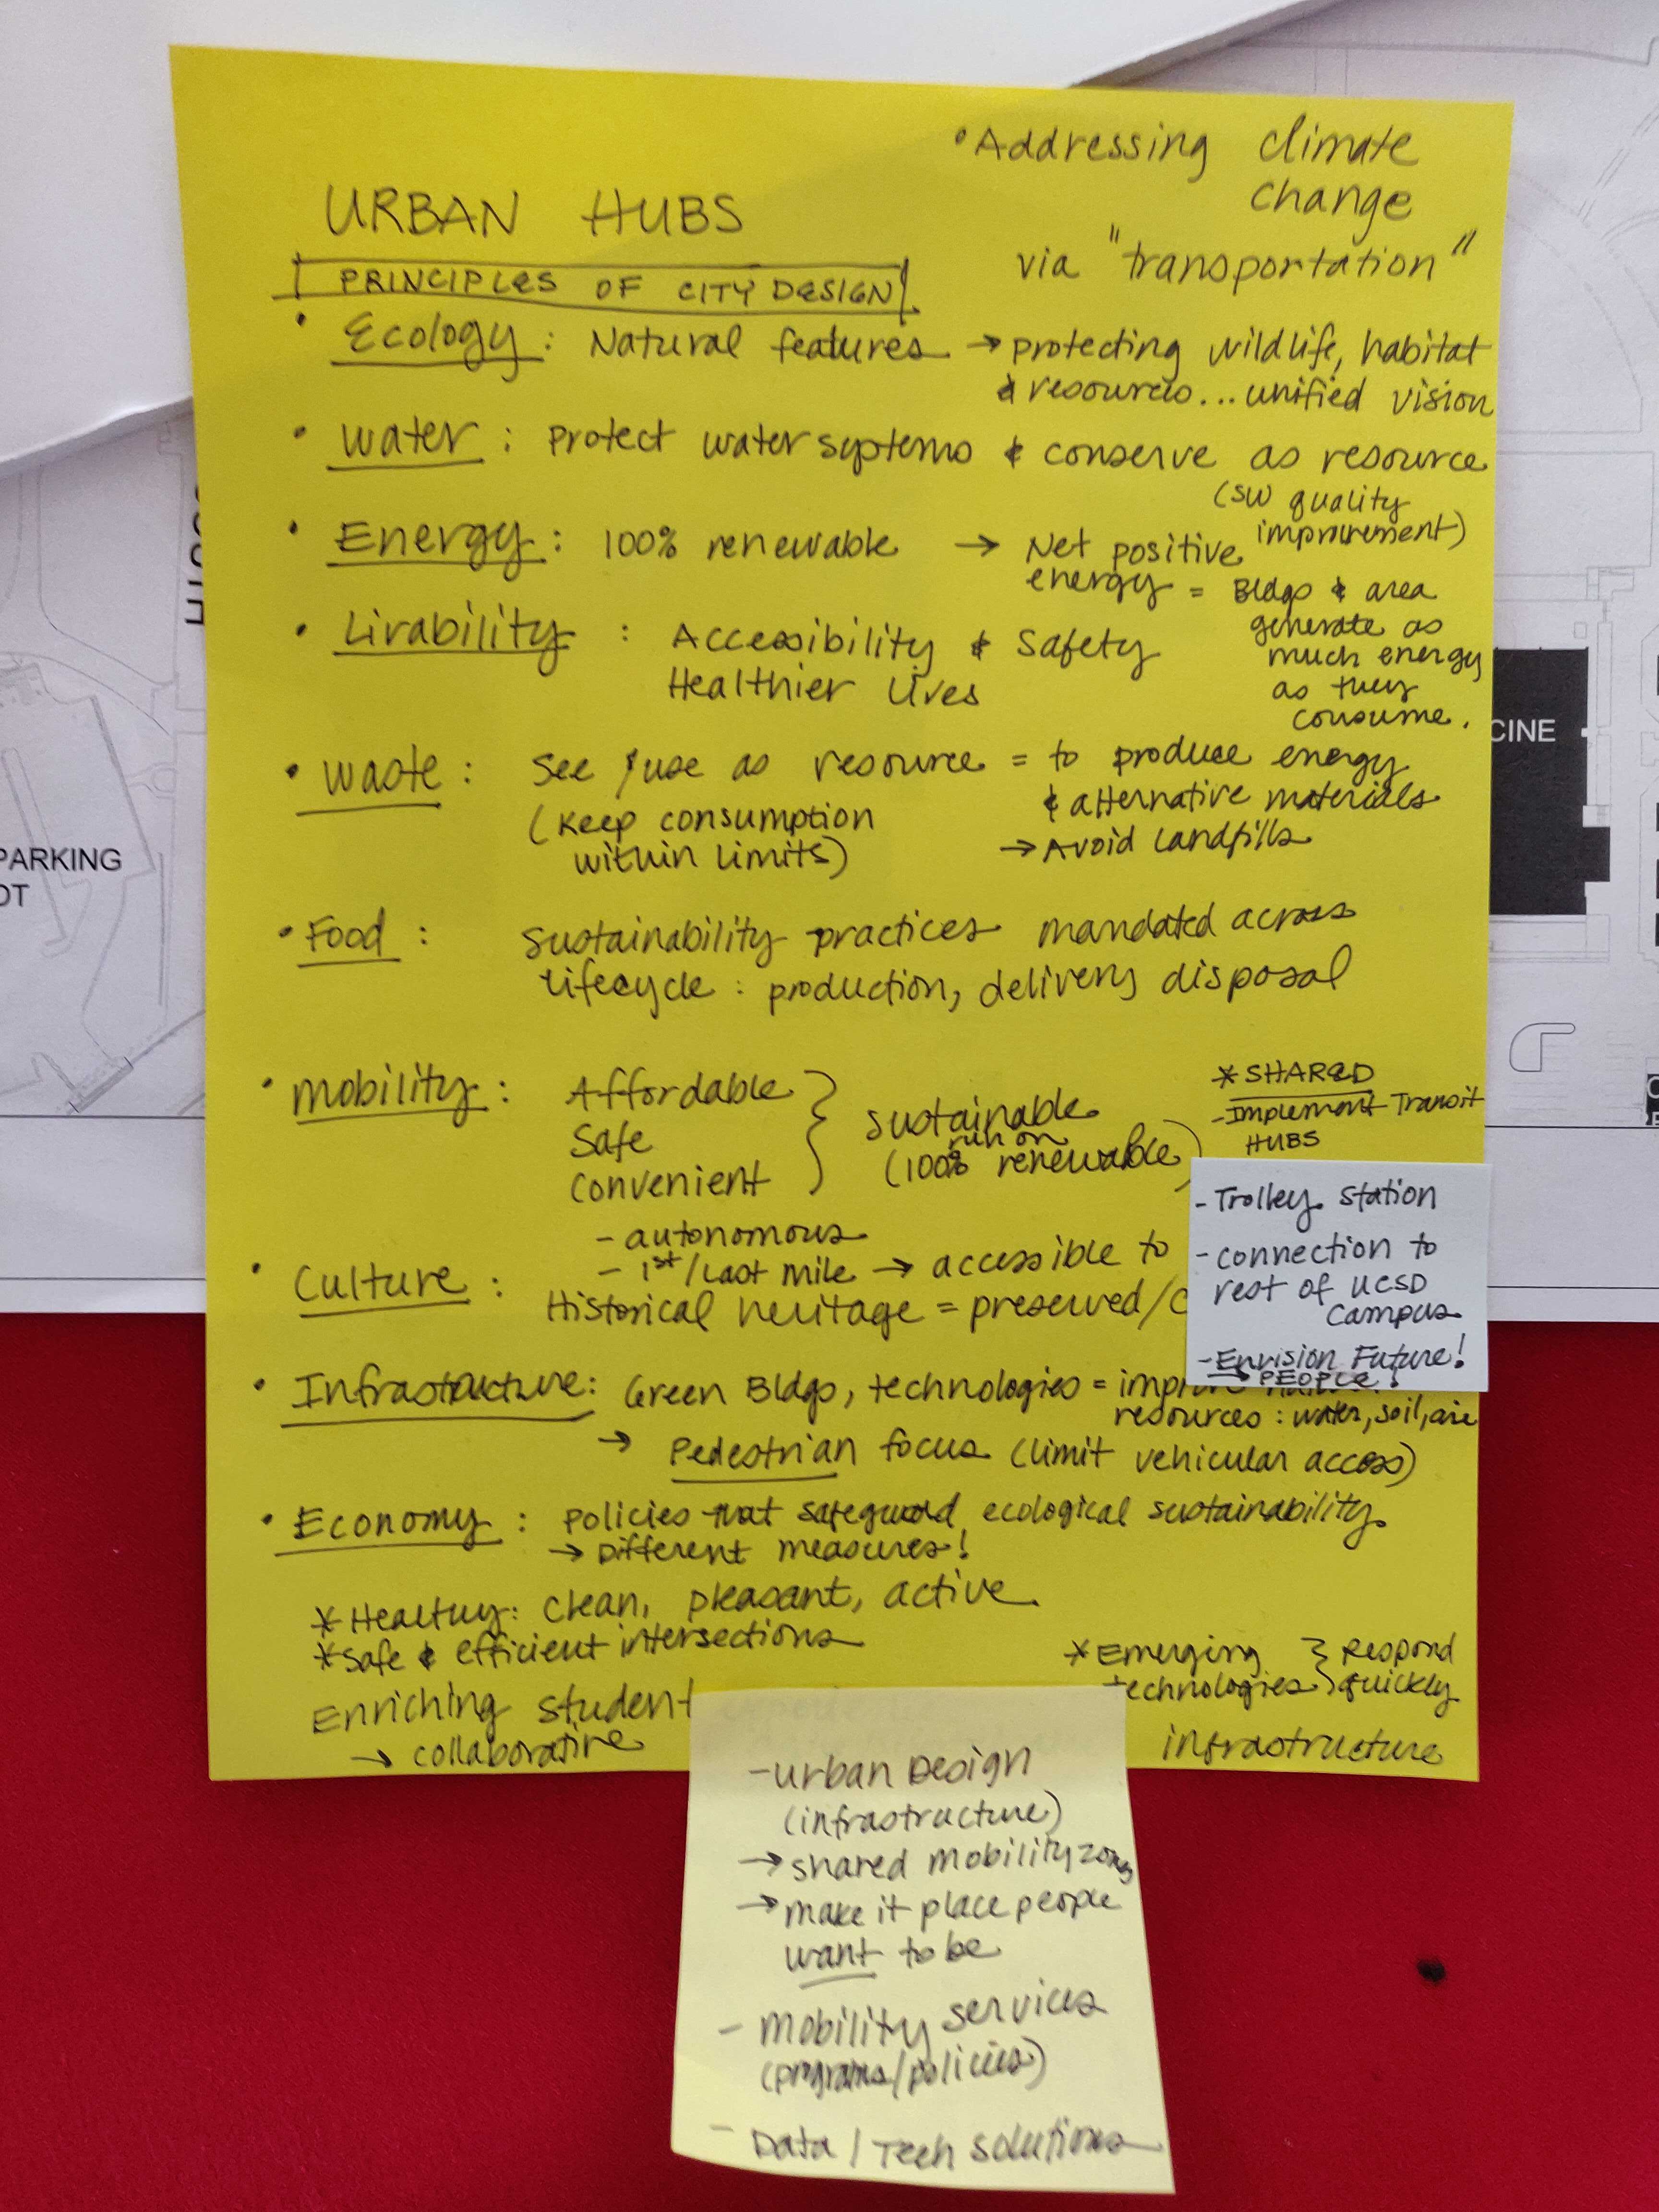 • Addressing climate
change
via "transportation"
URBAN HUBS
PRINCIPLES OF CITY DESIGN
• Ecology : Natural features → protecting wildlife, habitat
& resources... unified vision
• Water : Protect water systems & conserve as resource
(SW quality
improvement)
• Energy : 100% renewable → Net positive
energy = Bldgs & area
generate as
much energy
as they
consume.
• Livability : Accessibility & Safety
Healthier Lives
• Waste : See / use as resource = to produce energy
& alternative materials
(Keep consumption
within limits)
→ Avoid landfills
• Food : Sustainability practices mandated across
lifecycle : production, delivery, disposal
• Mobility : Affordable
Safe
Convenient
} sustainable
run on
(100% renewable)
* SHARED
- Implement Transit
HUBS
- autonomous
- 1st/Last mile → accessible to
• Culture :
Historical heritage = preserved/
- Trolley Station
- connection to
rest of UCSD
Campus
- Envision Future!
→ PEOPLE!
• Infrastructure: Green Bldgs, technologies =
resources : water, soil, air
→ Pedestrian focus (limit vehicular access)
• Economy : policies that safeguard ecological sustainability
→ Different measures!
* Healthy: clean, pleasant, active
* Safe & efficient intersections
* Emerging
technologies
} Respond
quickly
Enriching student
→ collaborative
infrastructure
- Urban Design
(infrastructure)
→ shared mobility zones
→ make it place people
want to be
- Mobility services
(programs/policies)
- Data / Tech solutions
PARKING
OT
CINE